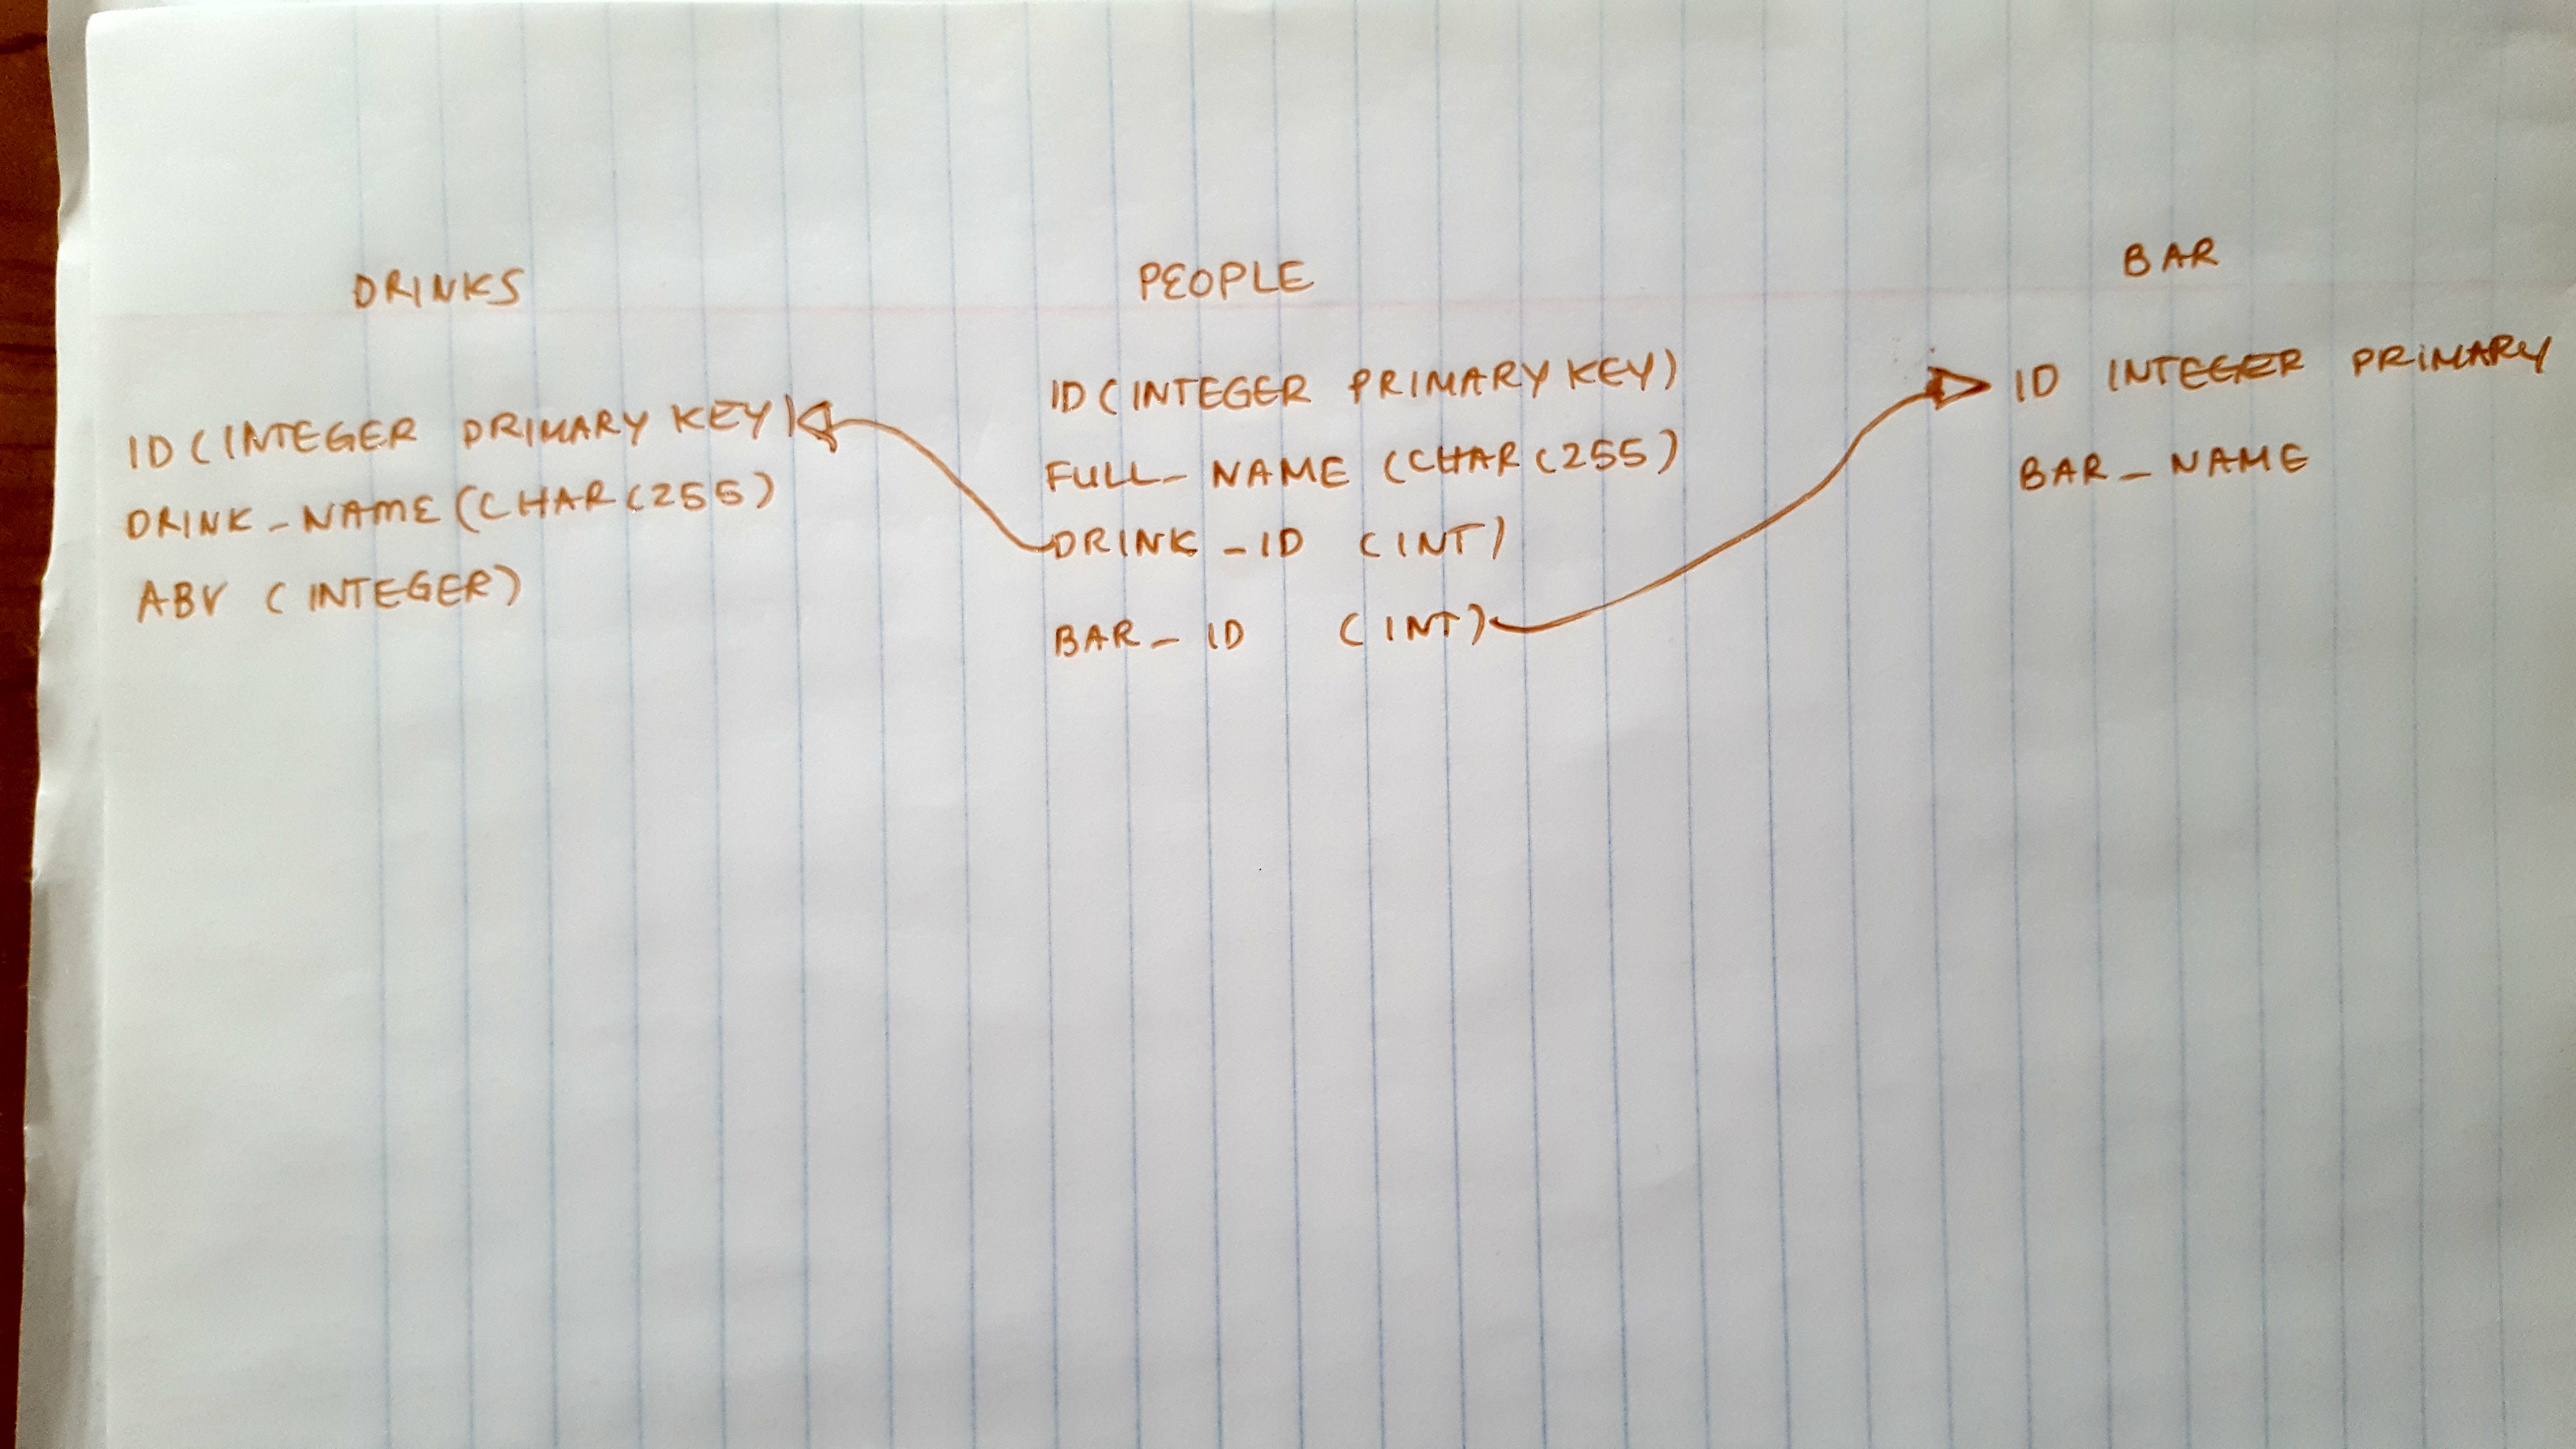 DRINKS
ID (INTEGER PRIMARY KEY)
DRINK_NAME (CHAR(255)
ABV (INTEGER)
PEOPLE
ID (INTEGER PRIMARY KEY)
FULL_NAME (CHAR(255)
DRINK_ID (INT)
BAR_ID (INT)
BAR
ID INTEGER PRIMARY
BAR_NAME